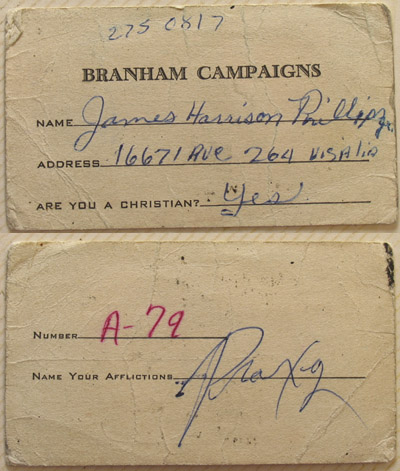 275 0817
BRANHAM CAMPAIGNS
NAME James Harrison Phillips Jr.
ADDRESS 16671 Ave 264 Visalia
ARE YOU A CHRISTIAN? Yes
NUMBER A-79
NAME YOUR AFFLICTIONS Proxy